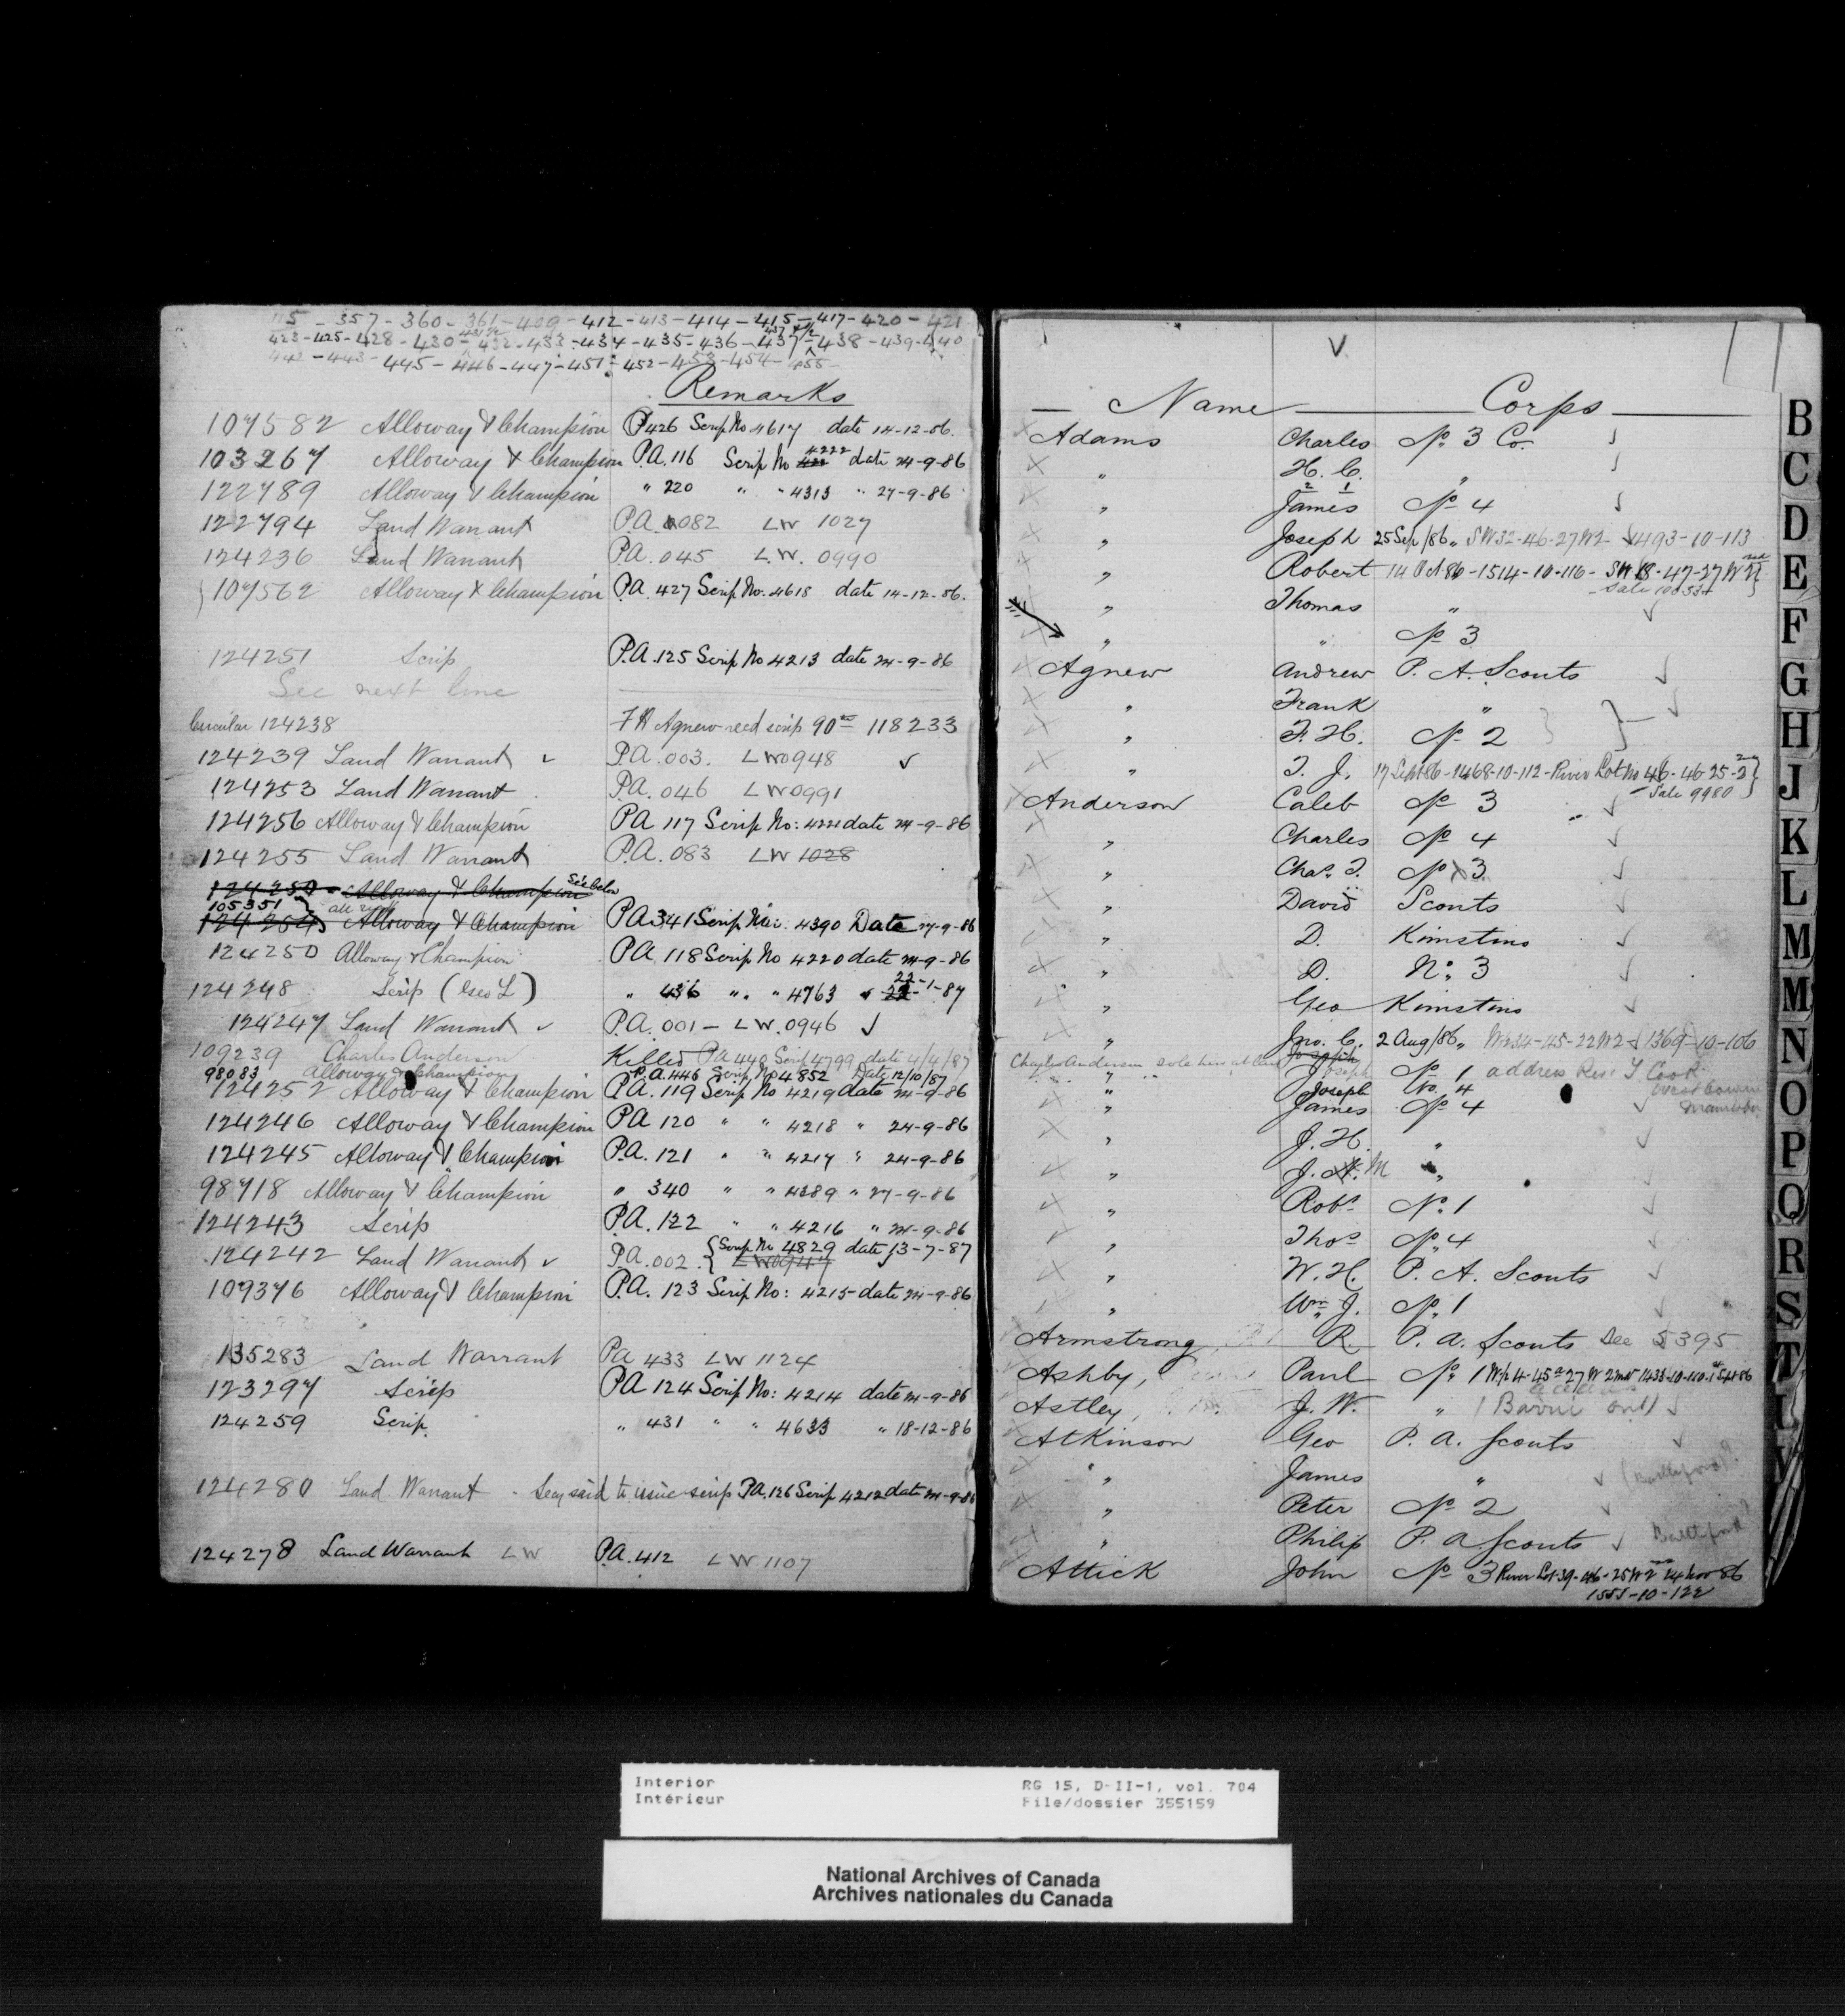 115 - 357 - 360 - 361 - 409 - 412 - 413 - 414 - 415 - 417 - 420 - 421
423 - 425 - 428 - 430 - 432 - 433 - 434 - 435 - 436 - 437 - 438 - 439 - 440
442 - 443 - 445 - 446 - 447 - 451 - 452 - 453 - 454 - 455 -
Remarks
107582 Alloway & Champion P426 Scrip No 4617 date 14-12-86.
103267 Alloway & Champion P.A. 116 Scrip No 4222 date 24-9-86
122789 Alloway & Champion " 220 " " 4313 " 27-9-86
122794 Land Warrant P.A. 082 LW 1027
124236 Land Warrant P.A. 045 L.W. 0990
107562 Alloway & Champion P.A. 427 Scrip No. 4618 date 14-12-86.
124251 Scrip P.A. 125 Scrip No 4213 date 24-9-86
See next line
Circular 124238 F H Agnew recd scrip 90th 118233
124239 Land Warrant ✓ P.A. 003. LW0948 ✓
124253 Land Warrant P.A. 046 LW0991
124256 Alloway & Champion PA 117 Scrip No: 4221 date 24-9-86
124255 Land Warrant P.A. 083 LW 1028
124250 - Alloway & Champion See below
105351
124254 Alloway & Champion PA 341 Scrip No: 4390 Date 27-9-86
124250 Alloway & Champion PA 118 Scrip No 4220 date 24-9-86
124248 Scrip (Geo L) " 436 " " 4763 22-1-87
124247 Land Warrant ✓ P.A. 001 - LW. 0946 ✓
109239 Charles Anderson Killed PA 440 Scrip 4799 date 4/4/87
98083 Alloway & Champion P.A. 446 Scrip No 4852 Date 12/10/87
124252 Alloway & Champion P.A. 119 Scrip No 4219 date 24-9-86
124246 Alloway & Champion PA 120 " " 4218 " 24-9-86
124245 Alloway & Champion P.A. 121 " " 4217 " 24-9-86
98718 Alloway & Champion " 340 " " 4389 " 27-9-86
124243 Scrip P.A. 122 " " 4216 " 24-9-86
124242 Land Warrant ✓ P.A. 002. { Scrip No 4829 date 13-7-87
LW0947
109376 Alloway & Champion P.A. 123 Scrip No: 4215 - date 24-9-86
135283 Land Warrant PA 433 LW 1124
123297 Scrip PA 124 Scrip No: 4214 date 24-9-86
124259 Scrip " 431 " " 4633 " 18-12-86
124280 Land Warrant - Secy said to issue scrip PA. 126 Scrip 4212 date 24-9-86
124278 Land Warrant LW P.A. 412 LW 1107
1
V
Name Corps
Adams Charles No 3 Co. ✓
" H. C. " ✓
" 2 1
James No 4 ✓
" Joseph 25 Sep/86 " SW32-46-27W2 - 1493-10-113
" Robert 14 Oct 86 - 1514-10-116 - SW 18-47-27W 2nd
Sale
" Thomas " ✓
" " No 3
Agnew Andrew P. A. Scouts ✓
" Frank " ✓
" F. H. No 2
" T. J. 17 Sept 86 - 1468-10-112 - River Lot No 46-46-25-2
Sale 9980
Anderson Caleb No 3 ✓
" Charles No 4 ✓
" Chas. T. No 3 ✓
" David Scouts ✓
" D. Kinistino ✓
" D. No. 3 ✓
" Geo Kinistino ✓
" Jno. C. 2 Aug/86 " 34-45-22W2 - 1369-10-106
Charles Anderson sole heir at law Joseph
" Joseph No 1 address Rev T Cook
" Joseph No. 4
" James No 4 ✓ Manitoba
" J. H. " ✓
" J. A. M " ✓
" Robt No. 1 ✓
" Thos No. 4 ✓
" W. H. P. A. Scouts ✓
" Wm J. No. 1 ✓
Armstrong, R P. A. Scouts Dec 5395
Ashby, Paul No. 1 W½ 4-45-27 W 2nd 1433-10-110
address
Astley, J. W. " (Barrie Ont) ✓
Atkinson Geo P. A. Scouts ✓
" James " ✓ (Battleford)
" Peter No 2 ✓
" Philip P. A. Scouts ✓ Battleford
Attick John No 3 River Lot 39-46-25W2nd 24 Nov 86
1555-10-122
B
C
D
E
F
G
H
J
K
L
M
M
N
O
P
Q
R
S
T
Interior RG 15, D-II-1, vol. 704
Intérieur File/dossier 355159
National Archives of Canada
Archives nationales du Canada